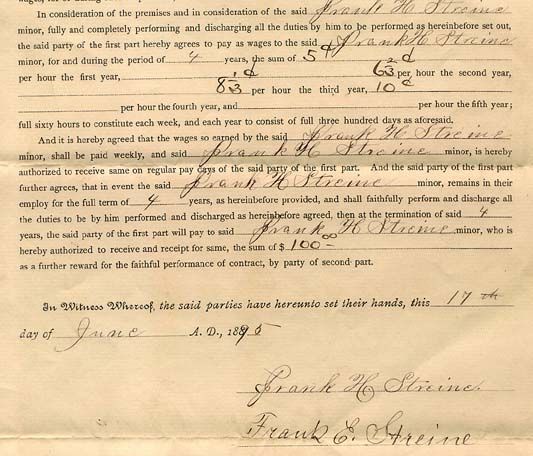 In consideration of the premises and in consideration of the said Frank H Streine
minor, fully and completely performing and discharging all the duties by him to be performed as hereinbefore set out,
the said party of the first part hereby agrees to pay as wages to the said Frank H Streine
minor, for and during the period of 4 years, the sum of 5¢
per hour the first year, 6 2/3 ¢ per hour the second year,
8 1/3 ¢ per hour the third year, 10 ¢
per hour the fourth year, and per hour the fifth year;
full sixty hours to constitute each week, and each year to consist of full three hundred days as aforesaid.
And it is hereby agreed that the wages so earned by the said Frank H Streine
minor, shall be paid weekly, and said Frank H Streine minor, is hereby
authorized to receive same on regular pay days of the said party of the first part. And the said party of the first part
further agrees, that in event the said Frank H Streine minor, remains in their
employ for the full term of 4 years, as hereinbefore provided, and shall faithfully perform and discharge all
the duties to be by him performed and discharged as hereinbefore agreed, then at the termination of said 4
years, the said party of the first part will pay to said Frank H Streine minor, who is
hereby authorized to receive and receipt for same, the sum of $ 100 00
as a further reward for the faithful performance of contract, by party of second part.
In Witness Whereof, the said parties have hereunto set their hands, this 17 th
day of June A. D., 1895
Frank H Streine.
Frank E. Streine